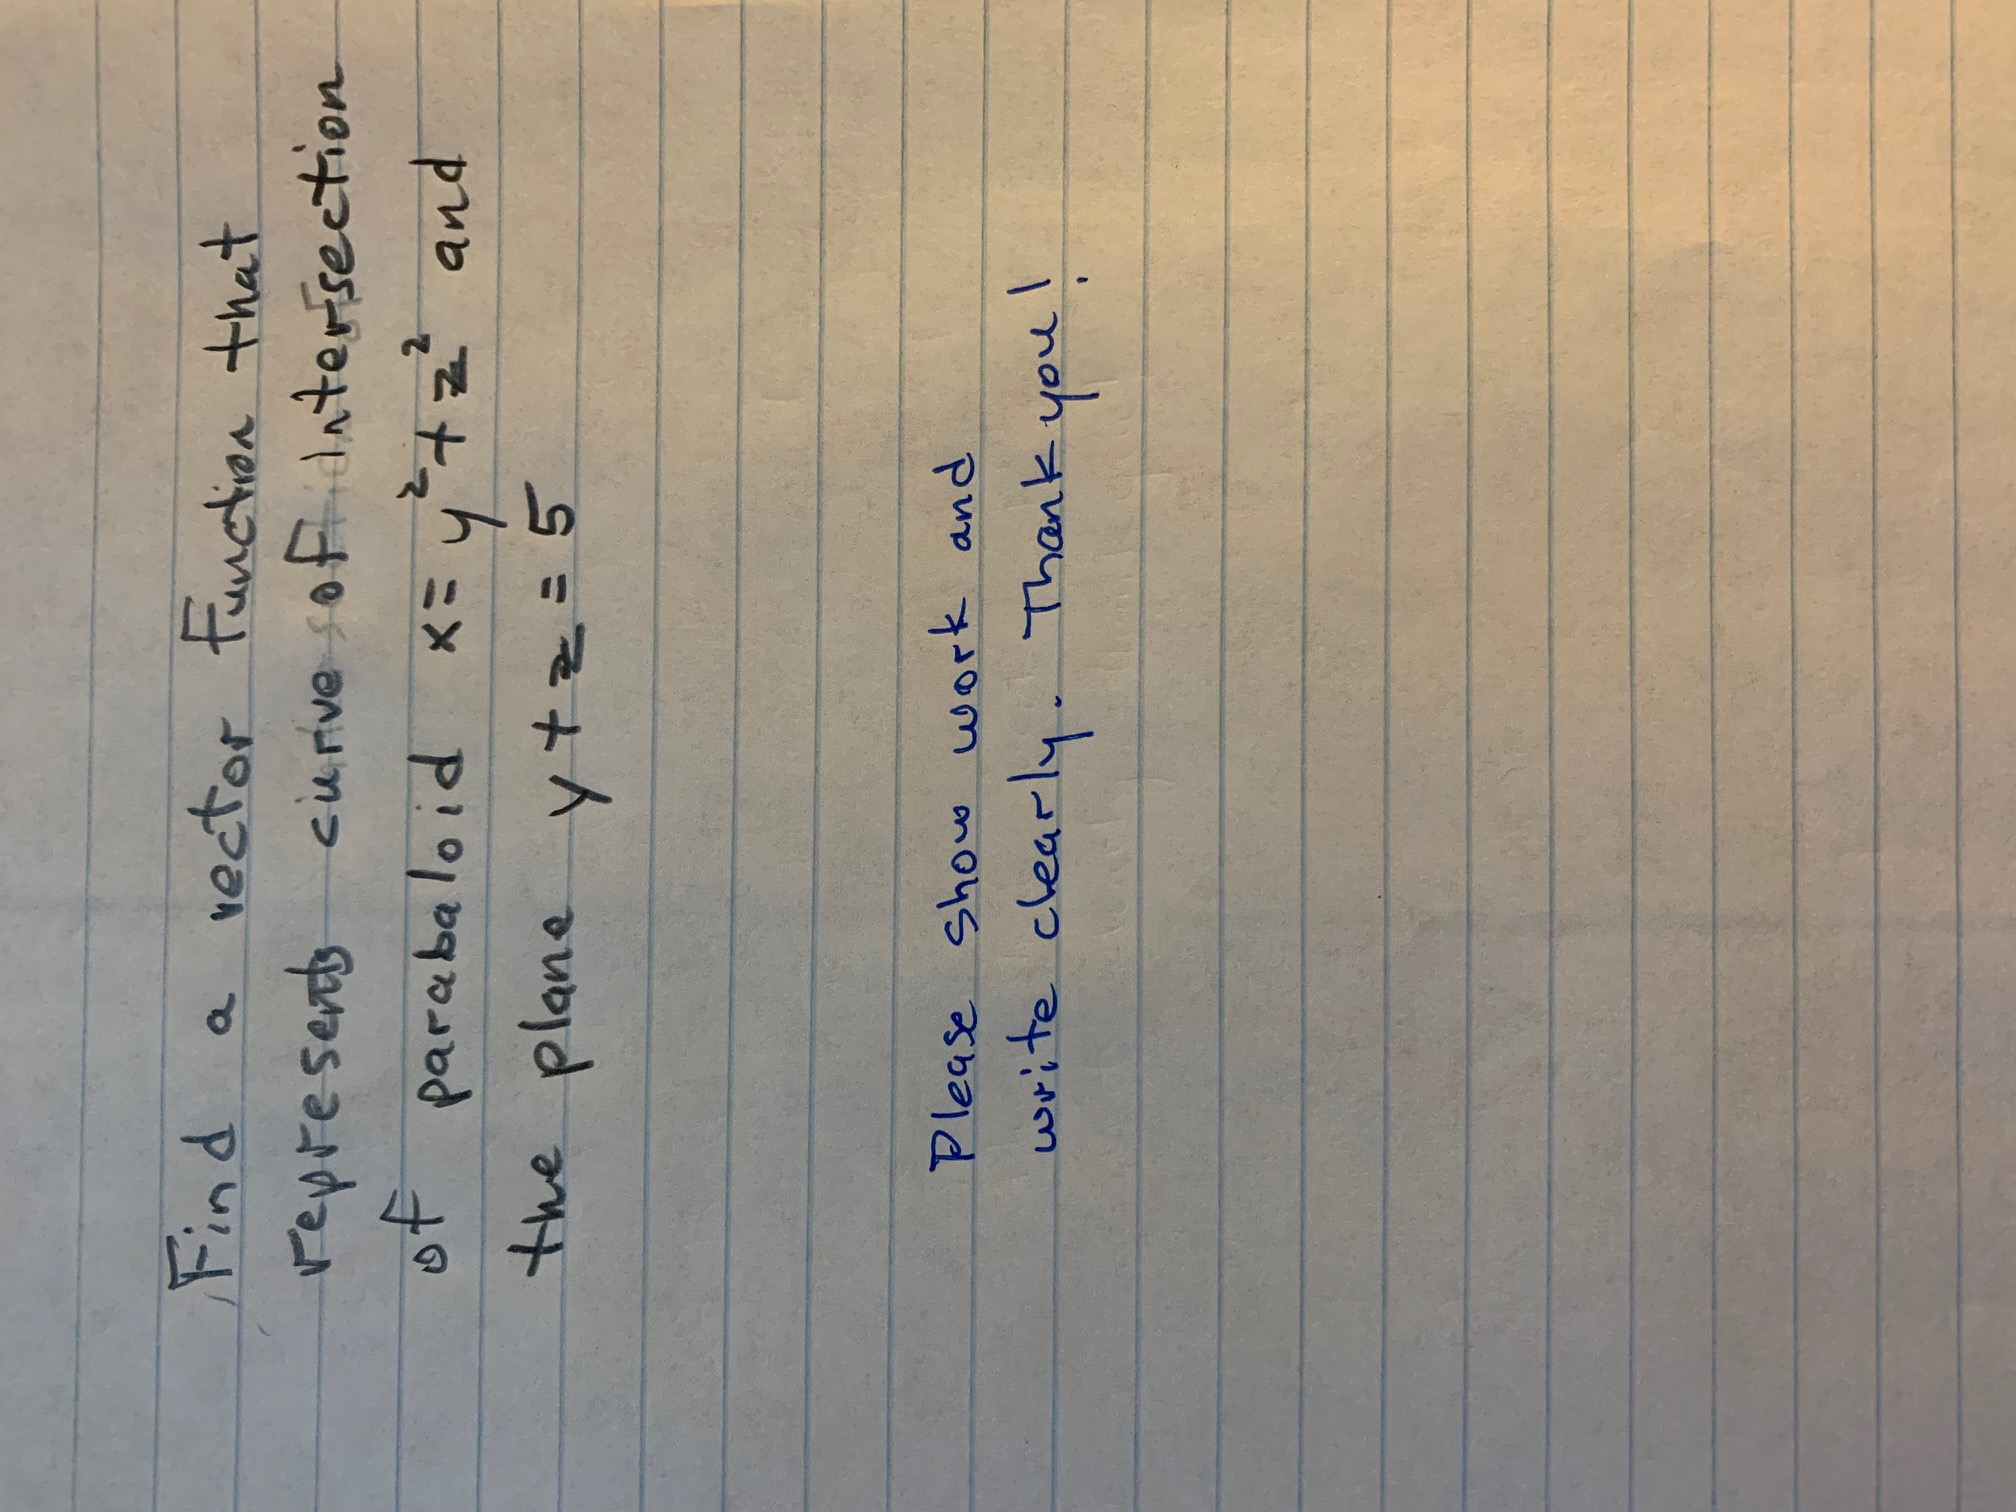 Find a vector Function that
represents curve of intersection
of parabaloid x = y² + z² and
the plane y + z = 5
Please show work and
write clearly. Thank you!